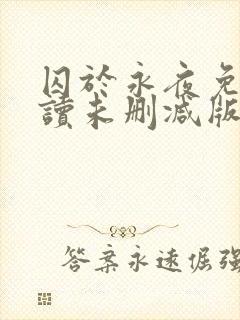 囚於永夜免
讀未刪減版
答案永遠倔強